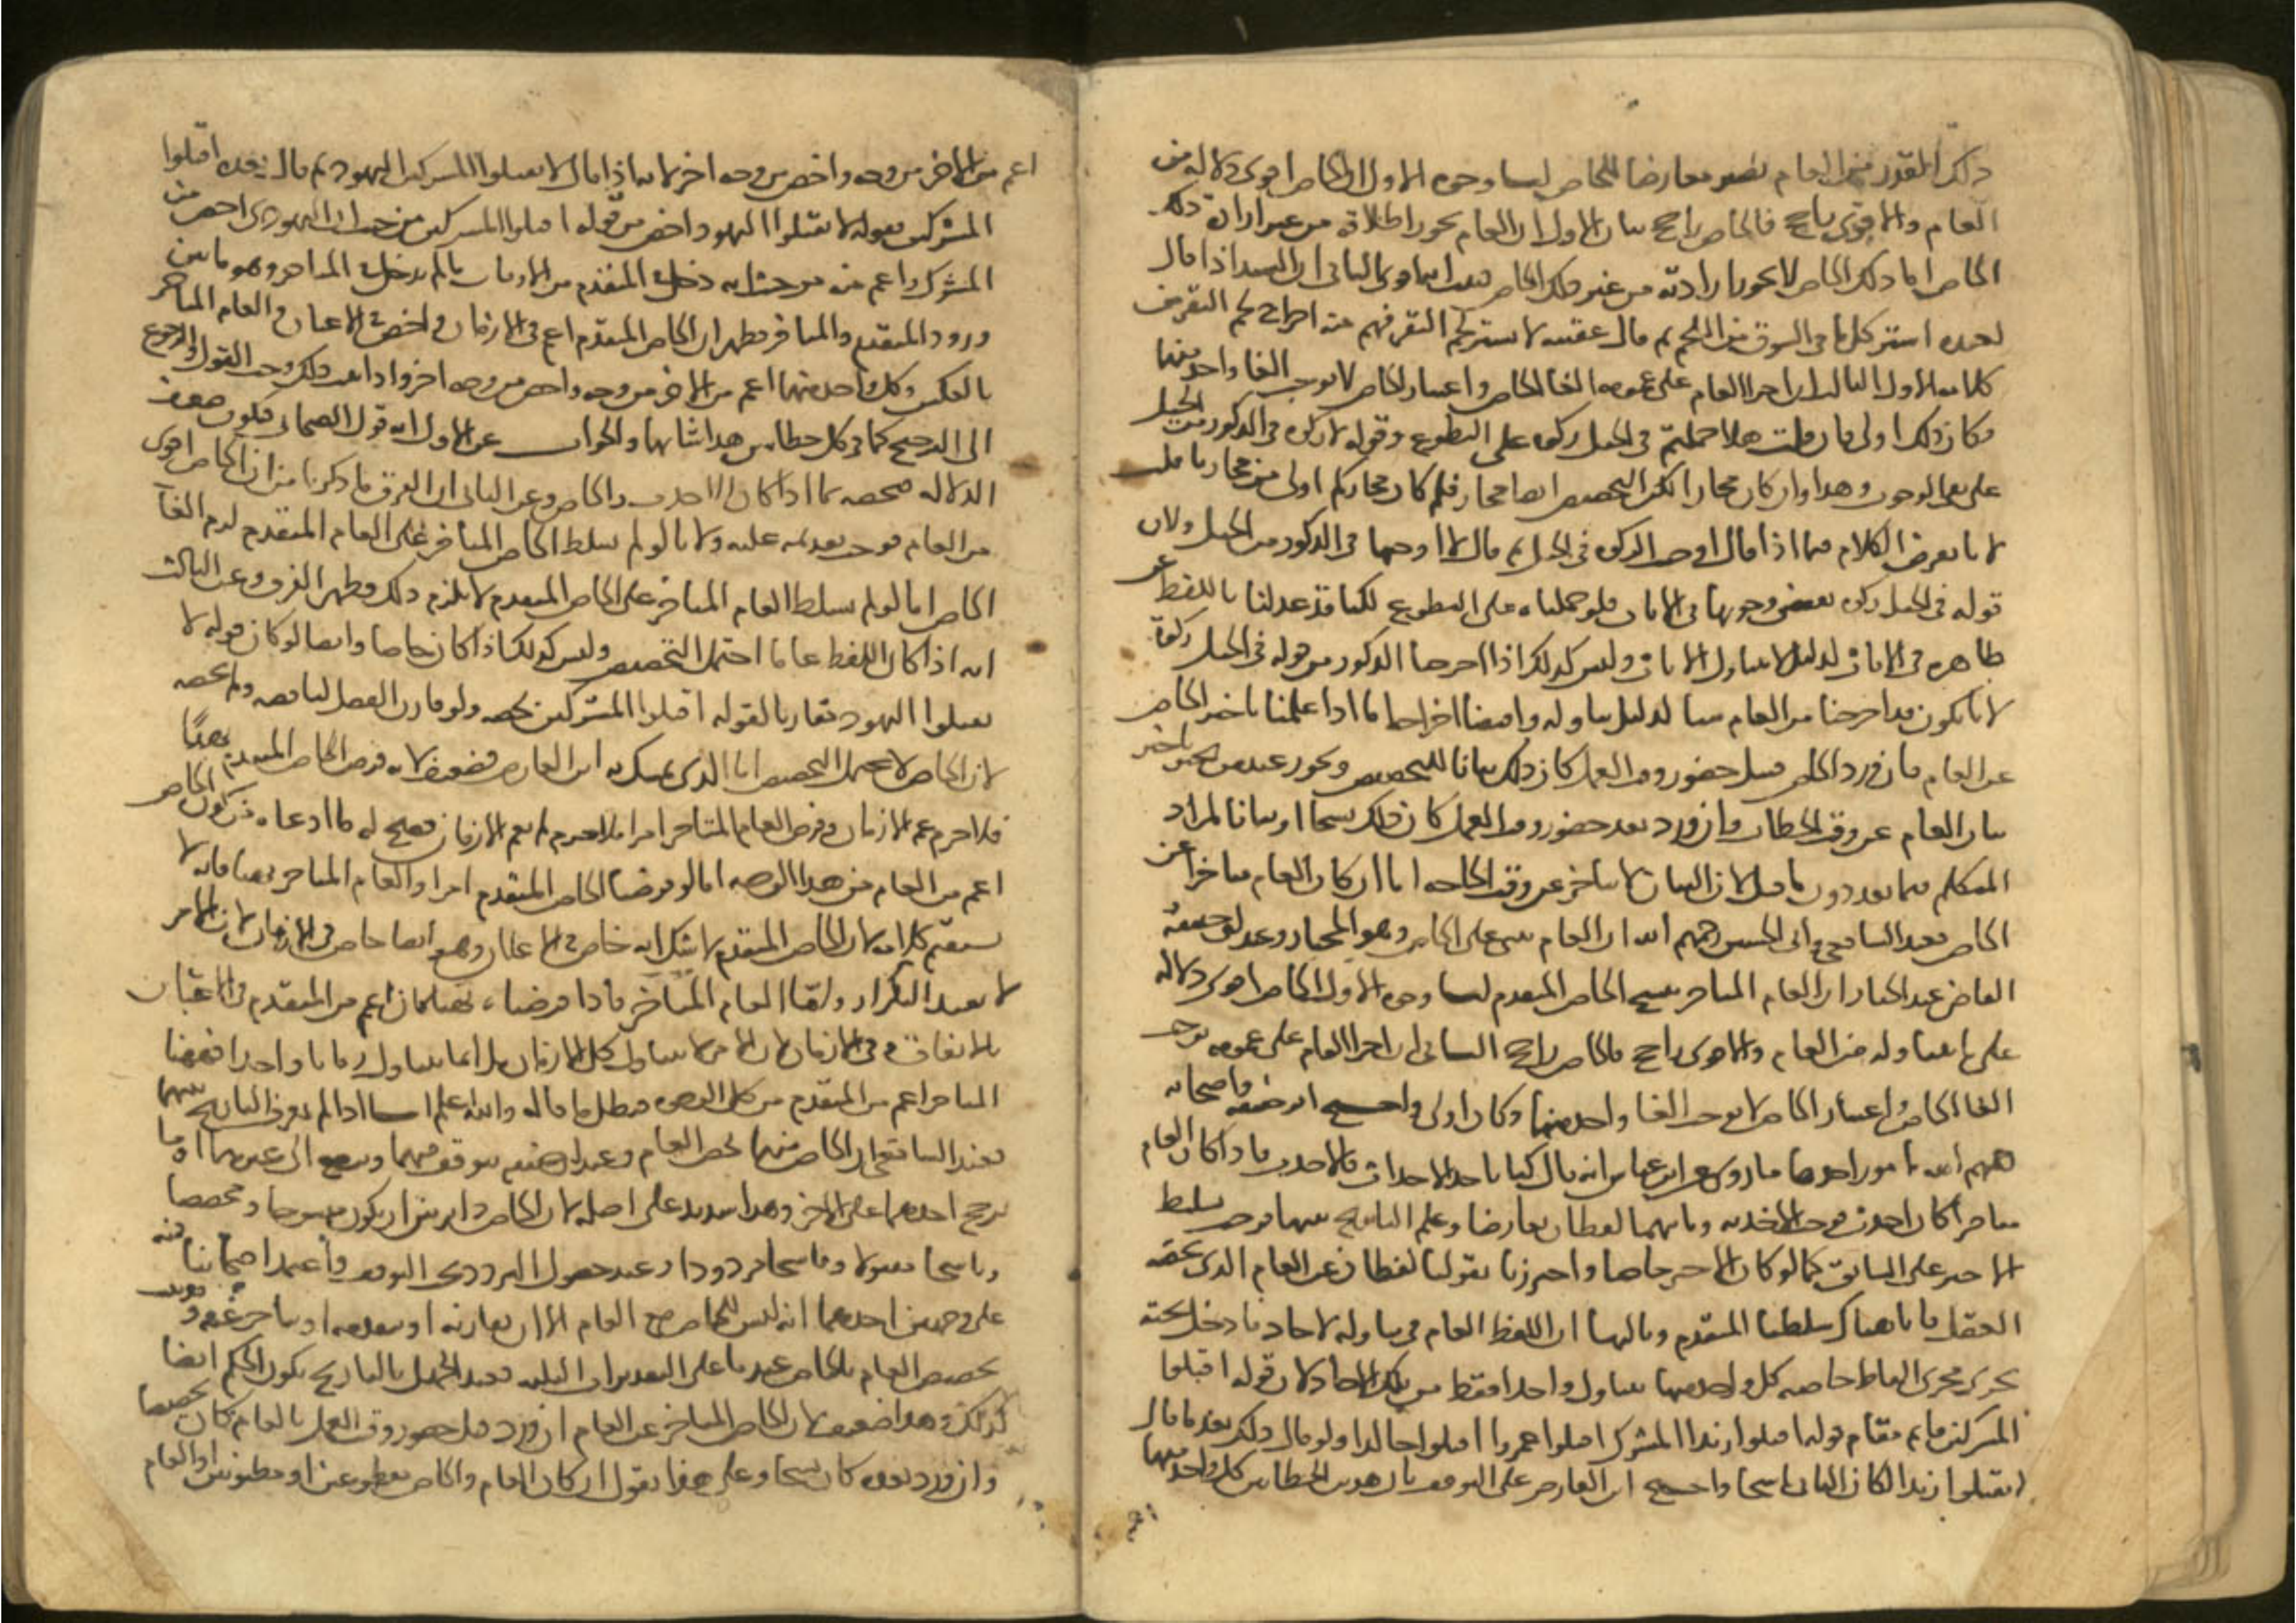 ذلك القدر من العام يصير معارضا للخاص لنا وجوه الاول ان الخاص اقوى دلالة من
العام والاقوى راجح فالخاص راجح بيان الاول ان العام يجوز اطلاقه من غير ارادة ذلك
الخاص اما ذلك الخاص لا يجوز ارادته من غير ذلك الخاص فثبت انه اقوى الثاني ان السيد اذا قال
لعبده اشتر كل ما في السوق من اللحم ثم قال عقيبه لا تشتر لحم البقر فهم منه اخراج لحم البقر من
كلامه الاول الثالث ان اجرا العام على عمومه الغا للخاص واعتبار الخاص لا يوجب الغا واحد منهما
فكان ذلك اولى فان قلت هلا حملتم في الخيل زكوة على التطوع وقوله لا زكوة في الذكور من الخيل
على نفي الوجوب وهذا وان كان مجازا لكن التخصيص ايضا مجاز فلم كان مجازكم اولى من مجازنا قلت
لانا نفرض الكلام فيما اذا قال اوجبت الزكوة في الخيل ثم قال لا اوجبها في الذكور من الخيل ولان
قوله في الخيل زكوة يقتضي وجوبها في الاناث فلو حملناه على التطوع لكنا قد عدلنا باللفظ عن
ظاهره في الاناث لدليل لا يتناول الاناث وليس كذلك اذا اخرجنا الذكور من قوله في الخيل زكوة
لانا نكون قد اخرجنا من العام شيا لدليل يتناوله واقتضا اخراجه اما اذا علمنا تاخير الخاص
عن العام فان ورد الخاص قبل حضور وقت العمل كان ذلك بيانا للتخصيص ويجوز عند من يجوز تاخير
بيان العام عن وقت الخطاب وان ورد بعد حضور وقت العمل كان ذلك نسخا او بيانا لمراد
المتكلم فيما بعد دون ما قبل لان البيان لا يتاخر عن وقت الحاجه اما ان كان العام متاخرا عن
الخاص فعند الشافعي وابي الحسين رحمهم الله ان العام يبنى على الخاص وهو المختار وعند ابي حنيفة
القاضي عبد الجبار ان العام المتاخر ينسخ الخاص المتقدم لنا وجوه الاول الخاص اقوى دلالة
على ما يتناوله من العام والاقوى راجح فالخاص راجح الثاني ان اجرا العام على عمومه يوجب
الغا الخاص واعتبار الخاص لا يوجب الغا واحد منهما وكان اولى واحتج ابو حنيفة واصحابه
رحمهم الله بامور احدها ما روى عن ابن عباس انه قال كنا ناخذ بالاحدث فالاحدث فاذا كان العام
متاخرا كان احدث فوجب الاخذ به وثانيها لفظان تعارضا وعلم التاريخ بينهما فوجب تسليط
الاخير على السابق كما لو كان الاخير خاصا واحترزنا بقولنا لفظان عن العام الذي يخصه
العقل فانا هناك سلطنا المتقدم وثالثها ان اللفظ العام في تناوله لاحاد ما دخل تحته
يجري مجرى الفاظ خاصه كل واحد منها يتناول واحدا فقط من تلك الاحاد لان قوله اقتلوا
المشركين قايم مقام قوله اقتلوا زيدا المشرك اقتلوا عمروا اقتلوا خالدا ولو قال ذلك بعد ما قال
لا تقتلوا زيدا لكان الثاني ناسخا واحتج ابن العارض على التوقف بان هذين الخطابين كل واحد منهما
اعم
اعم من الاخر من وجه واخص من وجه اخر لانه اذا قال لا تقتلوا المشركين اليهود ثم قال بعده اقتلوا
المشركين فقوله لا تقتلوا اليهود اخص من قوله اقتلوا المشركين من حيث ان اليهودي اخص من
المشرك واعم منه من حيث انه دخل في المتقدم من الاوقات ما لم يدخل في المتاخر وهو ما بين
ورود المتقدم والمتاخر فظهر ان الخاص المتقدم اعم في الازمان واخص في الاعيان والعام المتاخر
بالعكس وكل واحد منهما اعم من الاخر من وجه واخص من وجه اخر واذا ثبت ذلك وجب التوقف والرجوع
الى الترجيح كما في كل خطابين هذا شانهما والجواب عن الاول انه قول الصحابي فيكون ضعيف
الدلاله فنخصه بما اذا كان الاحدث هو الخاص وعن الثاني ان الفرق ما ذكرنا من ان الخاص اقوى
من العام فوجب تقديمه عليه ولانا لو لم نسلط الخاص المتاخر على العام المتقدم لزم الغا
الخاص اما لو لم نسلط العام المتاخر على الخاص المتقدم لا يلزم ذلك فظهر الفرق وعن الثالث
انه اذا كان اللفظ عاما احتمل التخصيص وليس كذلك اذا كان خاصا وايضا لو كان قوله لا
تقتلوا اليهود مقارنا لقوله اقتلوا المشركين لخصه ولو قارن المفصل لناقضه ولم يخصه
لان الخاص لا يحتمل التخصيص اما الذي تمسك به ابن العارض فضعيف لانه فرض الخاص المتقدم نهيا
فلا جرم عم الازمان وفرض العام المتاخر امرا فلا جرم لم يعم الازمان فصح له ما ادعاه من كون الخاص
اعم من العام من هذا الوجه اما لو فرضنا الخاص المتقدم امرا والعام المتاخر نهيا فانه لا
يستقيم كلامه لان الخاص المتقدم لا شك انه خاص في الاعيان وهو ايضا خاص في الازمان لان الامر
لا يفيد التكرار ولقا العام المتاخر فاذا فرضناه نهيا كان اعم من المتقدم في الاعيان
بالاتفاق وفي الازمان لان الامر لا يتناول كل الازمان بل انما يتناول زمانا واحدا فههنا
المتاخر اعم من المتقدم من كل الوجوه فبطل ما قاله والله اعلم اما اذا لم يعرف التاريخ بينهما
فعند الشافعي ان الخاص منهما يخص العام وعند ابي حنيفة يتوقف فيهما ويرجع الى غيرهما او ما
يرجح احدهما على الاخر وهذا سديد على اصله لان الخاص دار بين ان يكون منسوخا ومخصصا
وناسخا مقبولا وناسخا مردودا وعند حصول التردد يجب التوقف واعتمد اصحابنا فيه
على وجهين احدهما انه ليس للخاص مع العام الا ان يقارنه او يتقدمه او يتاخر عنه وقد ثبت
تخصيص العام بالخاص عندنا على التقديرات الثلثه فعند الجهل بالتاريخ يكون الحكم ايضا
كذلك وهذا ضعيف لان الخاص المتاخر عن العام ان ورد قبل حضور وقت العمل بالعام كان تخصيصا
وان ورد بعده كان نسخا وعلى هذا نقول ان كان العام والخاص مقطوعين او مظنونين او العام